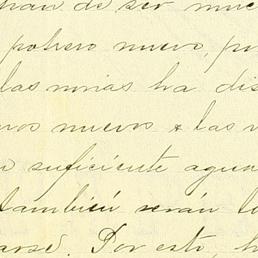 han de ser muc
potrero nuevo, po
las norias ha dis
vos nuevos & las
suficiente agua
también serán lo
arse. Por esto, h